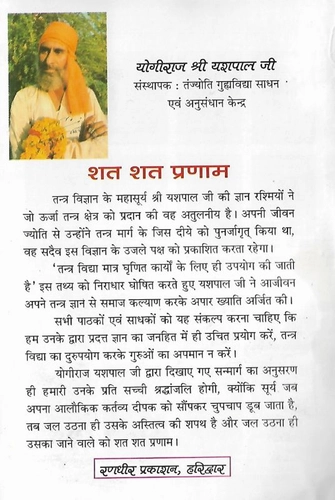 योगीराज श्री यशपाल जी
संस्थापक : तंज्योति गुह्यविद्या साधन
एवं अनुसंधान केन्द्र
शत शत प्रणाम
तन्त्र विज्ञान के महासूर्य श्री यशपाल जी की ज्ञान रश्मियों ने
जो ऊर्जा तन्त्र क्षेत्र को प्रदान की वह अतुलनीय है। अपनी जीवन
ज्योति से उन्होंने तन्त्र मार्ग के जिस दीये को पुनर्जागृत् किया था,
वह सदैव इस विज्ञान के उजले पक्ष को प्रकाशित करता रहेगा।
'तन्त्र विद्या मात्र घृणित कार्यों के लिए ही उपयोग की जाती
है' इस तथ्य को निराधार घोषित करते हुए यशपाल जी ने आजीवन
अपने तन्त्र ज्ञान से समाज कल्याण करके अपार ख्याति अर्जित की।
सभी पाठकों एवं साधकों को यह संकल्प करना चाहिए कि
हम उनके द्वारा प्रदत्त ज्ञान का जनहित में ही उचित प्रयोग करें, तन्त्र
विद्या का दुरुपयोग करके गुरुओं का अपमान न करें।
योगीराज यशपाल जी द्वारा दिखाए गए सन्मार्ग का अनुसरण
ही हमारी उनके प्रति सच्ची श्रद्धांजलि होगी, क्योंकि सूर्य जब
अपना आलौकिक कर्तव्य दीपक को सौंपकर चुपचाप डूब जाता है,
तब जल उठना ही उसके अस्तित्व की शपथ है और जल उठना ही
उसका जाने वाले को शत शत प्रणाम।
रणधीर प्रकाशन, हरिद्वार